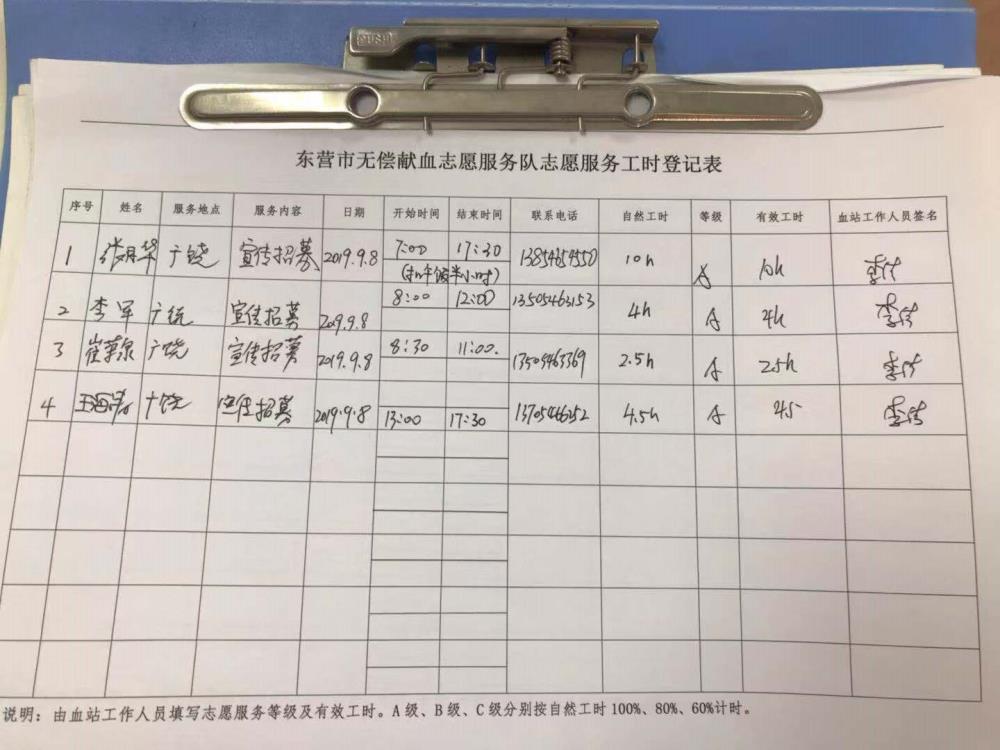 东营市无偿献血志愿服务队志愿服务工时登记表
序号 姓名 服务地点 服务内容 日期 开始时间 结束时间 联系电话 自然工时 等级 有效工时 血站工作人员签名
1 广饶 宣传招募 2019.9.8 7:00 17:30 13854659550 10h A 10h
(扣午饭半小时)
2 李军 广饶 宣传招募 2019.9.8 8:00 12:00 13505463153 4h A 4h
3 广饶 宣传招募 2019.9.8 8:30 11:00. 13505463369 2.5h A 2.5h
4 广饶 宣传招募 2019.9.8 13:00 17:30 4.5h A 4.5
说明：由血站工作人员填写志愿服务等级及有效工时。A级、B级、C级分别按自然工时100%、80%、60%计时。